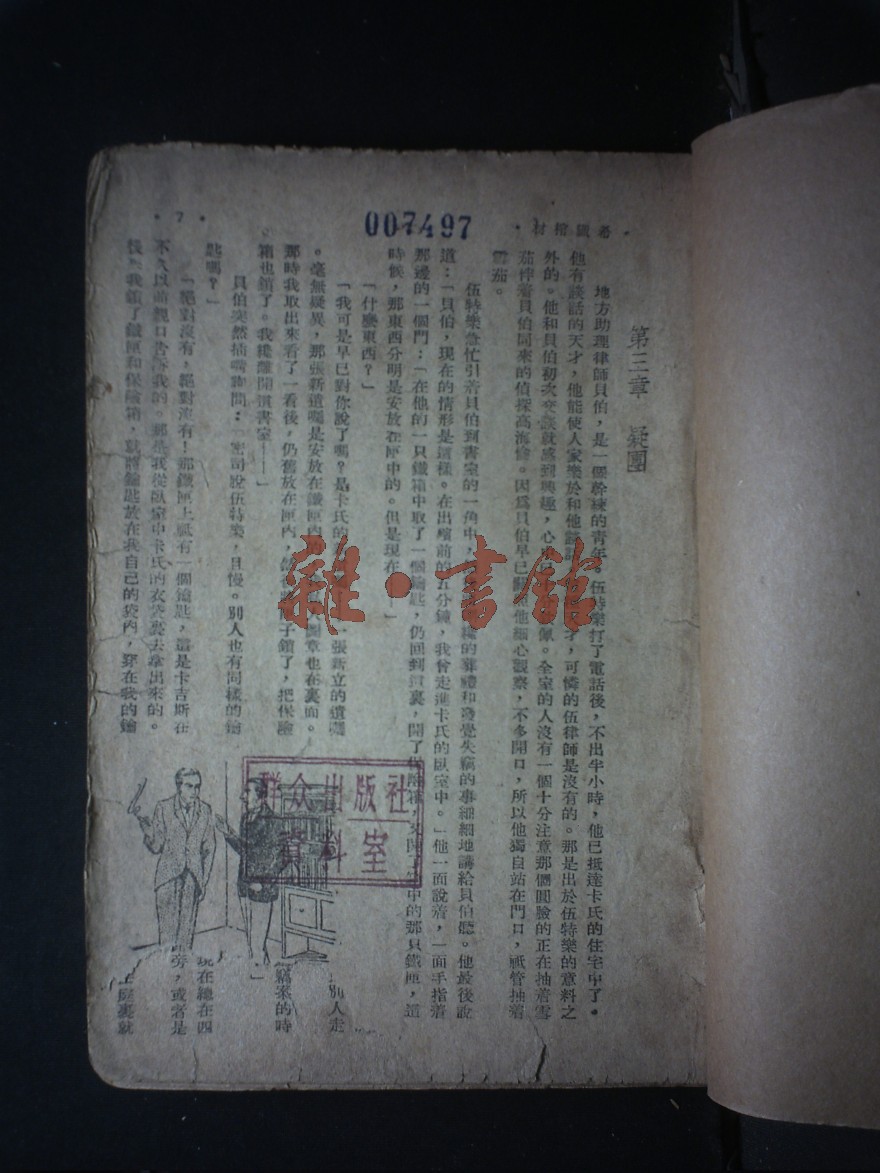 007497
希臘棺材
7
第三章　疑團
地方助理律師貝伯，是一個幹練的青年，伍特樂打了電話後，不出半小時，他已抵達卡氏的住宅中了。
他有談話的天才，他能使人家樂於和他談話，才，可憐的伍律師是沒有的。那是出於伍特樂的意料之
外的。他和貝伯初次交談就感到興趣，心。全室的人沒有一個十分注意那個圓臉的正在抽着雪
茄伴着貝伯同來的偵探高海倫。因爲貝伯早已他細心觀察，不多開口，所以他獨自站在門口，祇管抽着
雪茄。
伍特樂急忙引着貝伯到書室的一角中，的葬禮和發覺失竊的事細細地講給貝伯聽。他最後說
道：「貝伯，現在的情形是這樣。在出殯前的五分鐘，我曾走進卡氏的臥室中。」他一面說着，一面手指着
那邊的一個門；「在他的一只鐵箱中取了一個鑰匙，仍回到這裏，開了保險箱，又開了箱中的那只鐵匣，這
時候，那東西分明是安放在匣中的。但是現在——」
「什麼東西？」
「我可是早已對你說了嗎？是卡氏的一張新立的遺囑
。毫無疑異，那張新遺囑是安放在鐵匣內的，圖章也在裏面。
那時我取出來看了一看後，仍舊放在匣內，子鎖了，把保險
箱也鎖了。我纔離開這書室——」
貝伯突然插嘴詢問：「密司脫伍特樂，且慢。別人也有同樣的鑰
匙嗎？」
「絕對沒有，絕對沒有！那鐵匣上祇有一個鑰匙，這是卡吉斯在
不久以前親口告訴我的。那是我從臥室中卡氏的衣袋裏去拿出來的。
後，我鎖了鐵匣和保險箱，就將鑰匙放在我自己的袋內，穿在我的鑰
別人走
竊案的時
」
現在總在四
旁，或者是
庭裏就
群众出版社
資料室
雜·書館